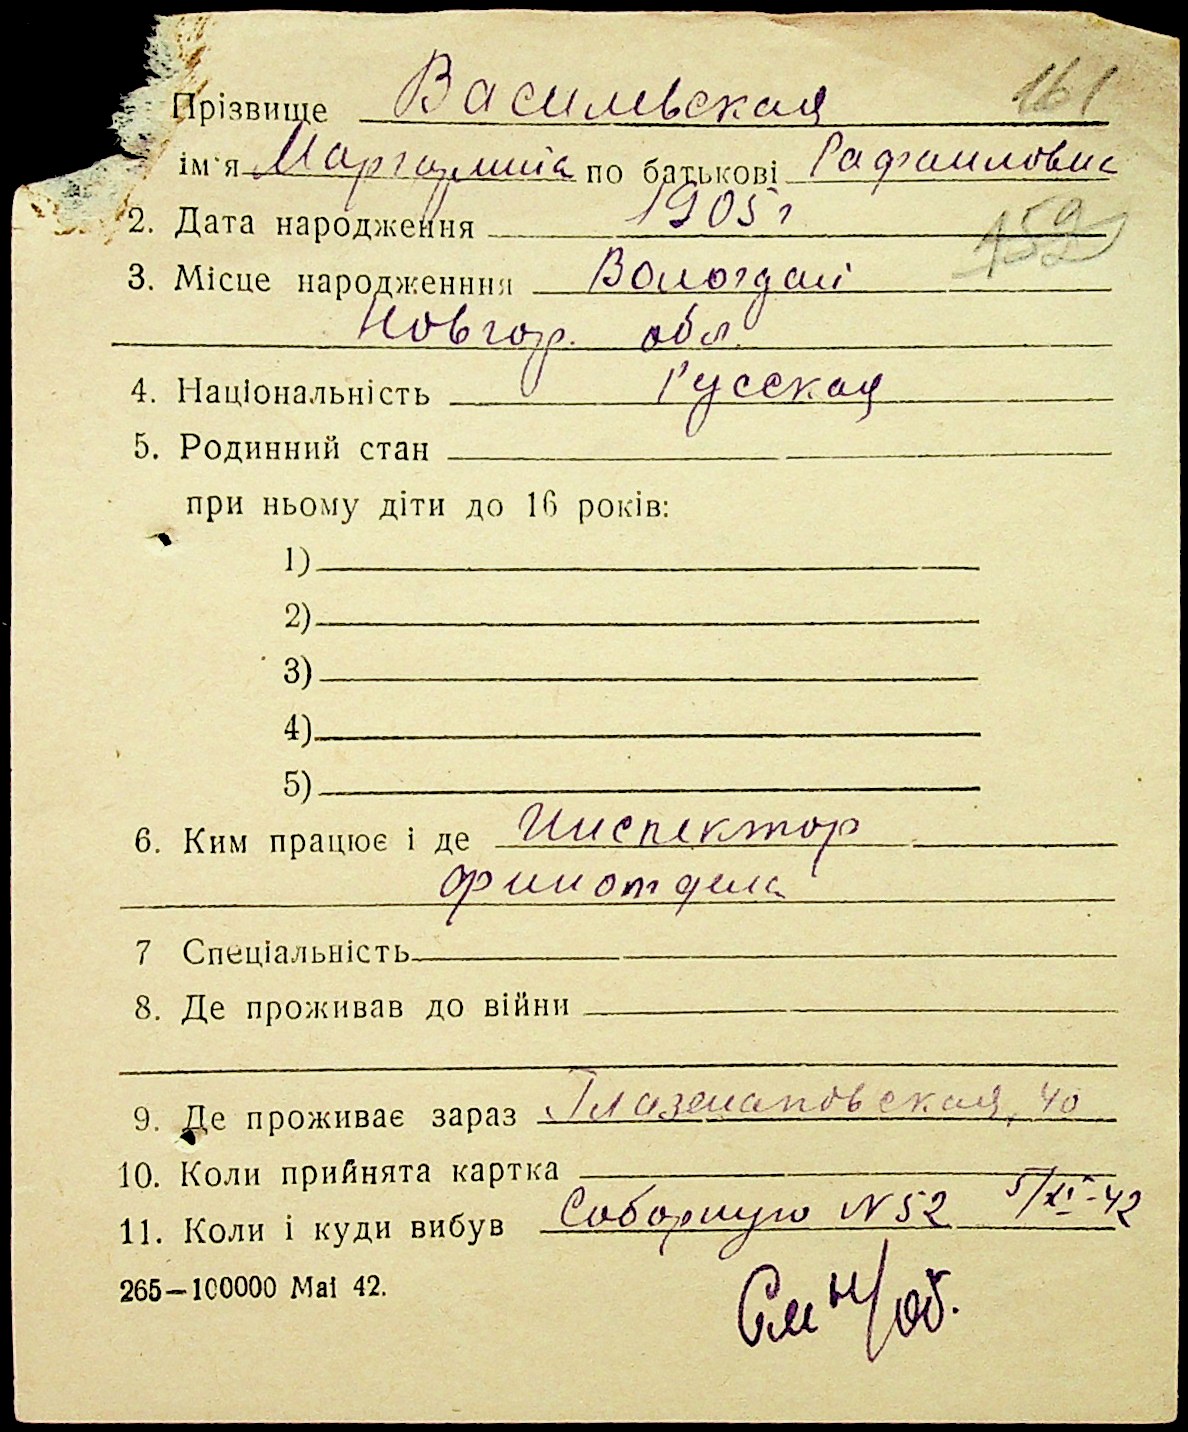 Прізвище Васильвская 161
ім'я Маргарита по батькові Рафаиловна
2. Дата народження 1905 г 159
3. Місце народженння Вологдаи
Новгор. обл.
4. Національність Русская
5. Родинний стан
при ньому діти до 16 років:
1)
2)
3)
4)
5)
6. Ким працює і де Инспектор
финотдела
7 Спеціальність
8. Де проживав до війни
9. Де проживає зараз 40
10. Коли прийнята картка
11. Коли і куди вибув Соборную N 52 5/XI-42
265—100000 Mai 42.
См н/об.